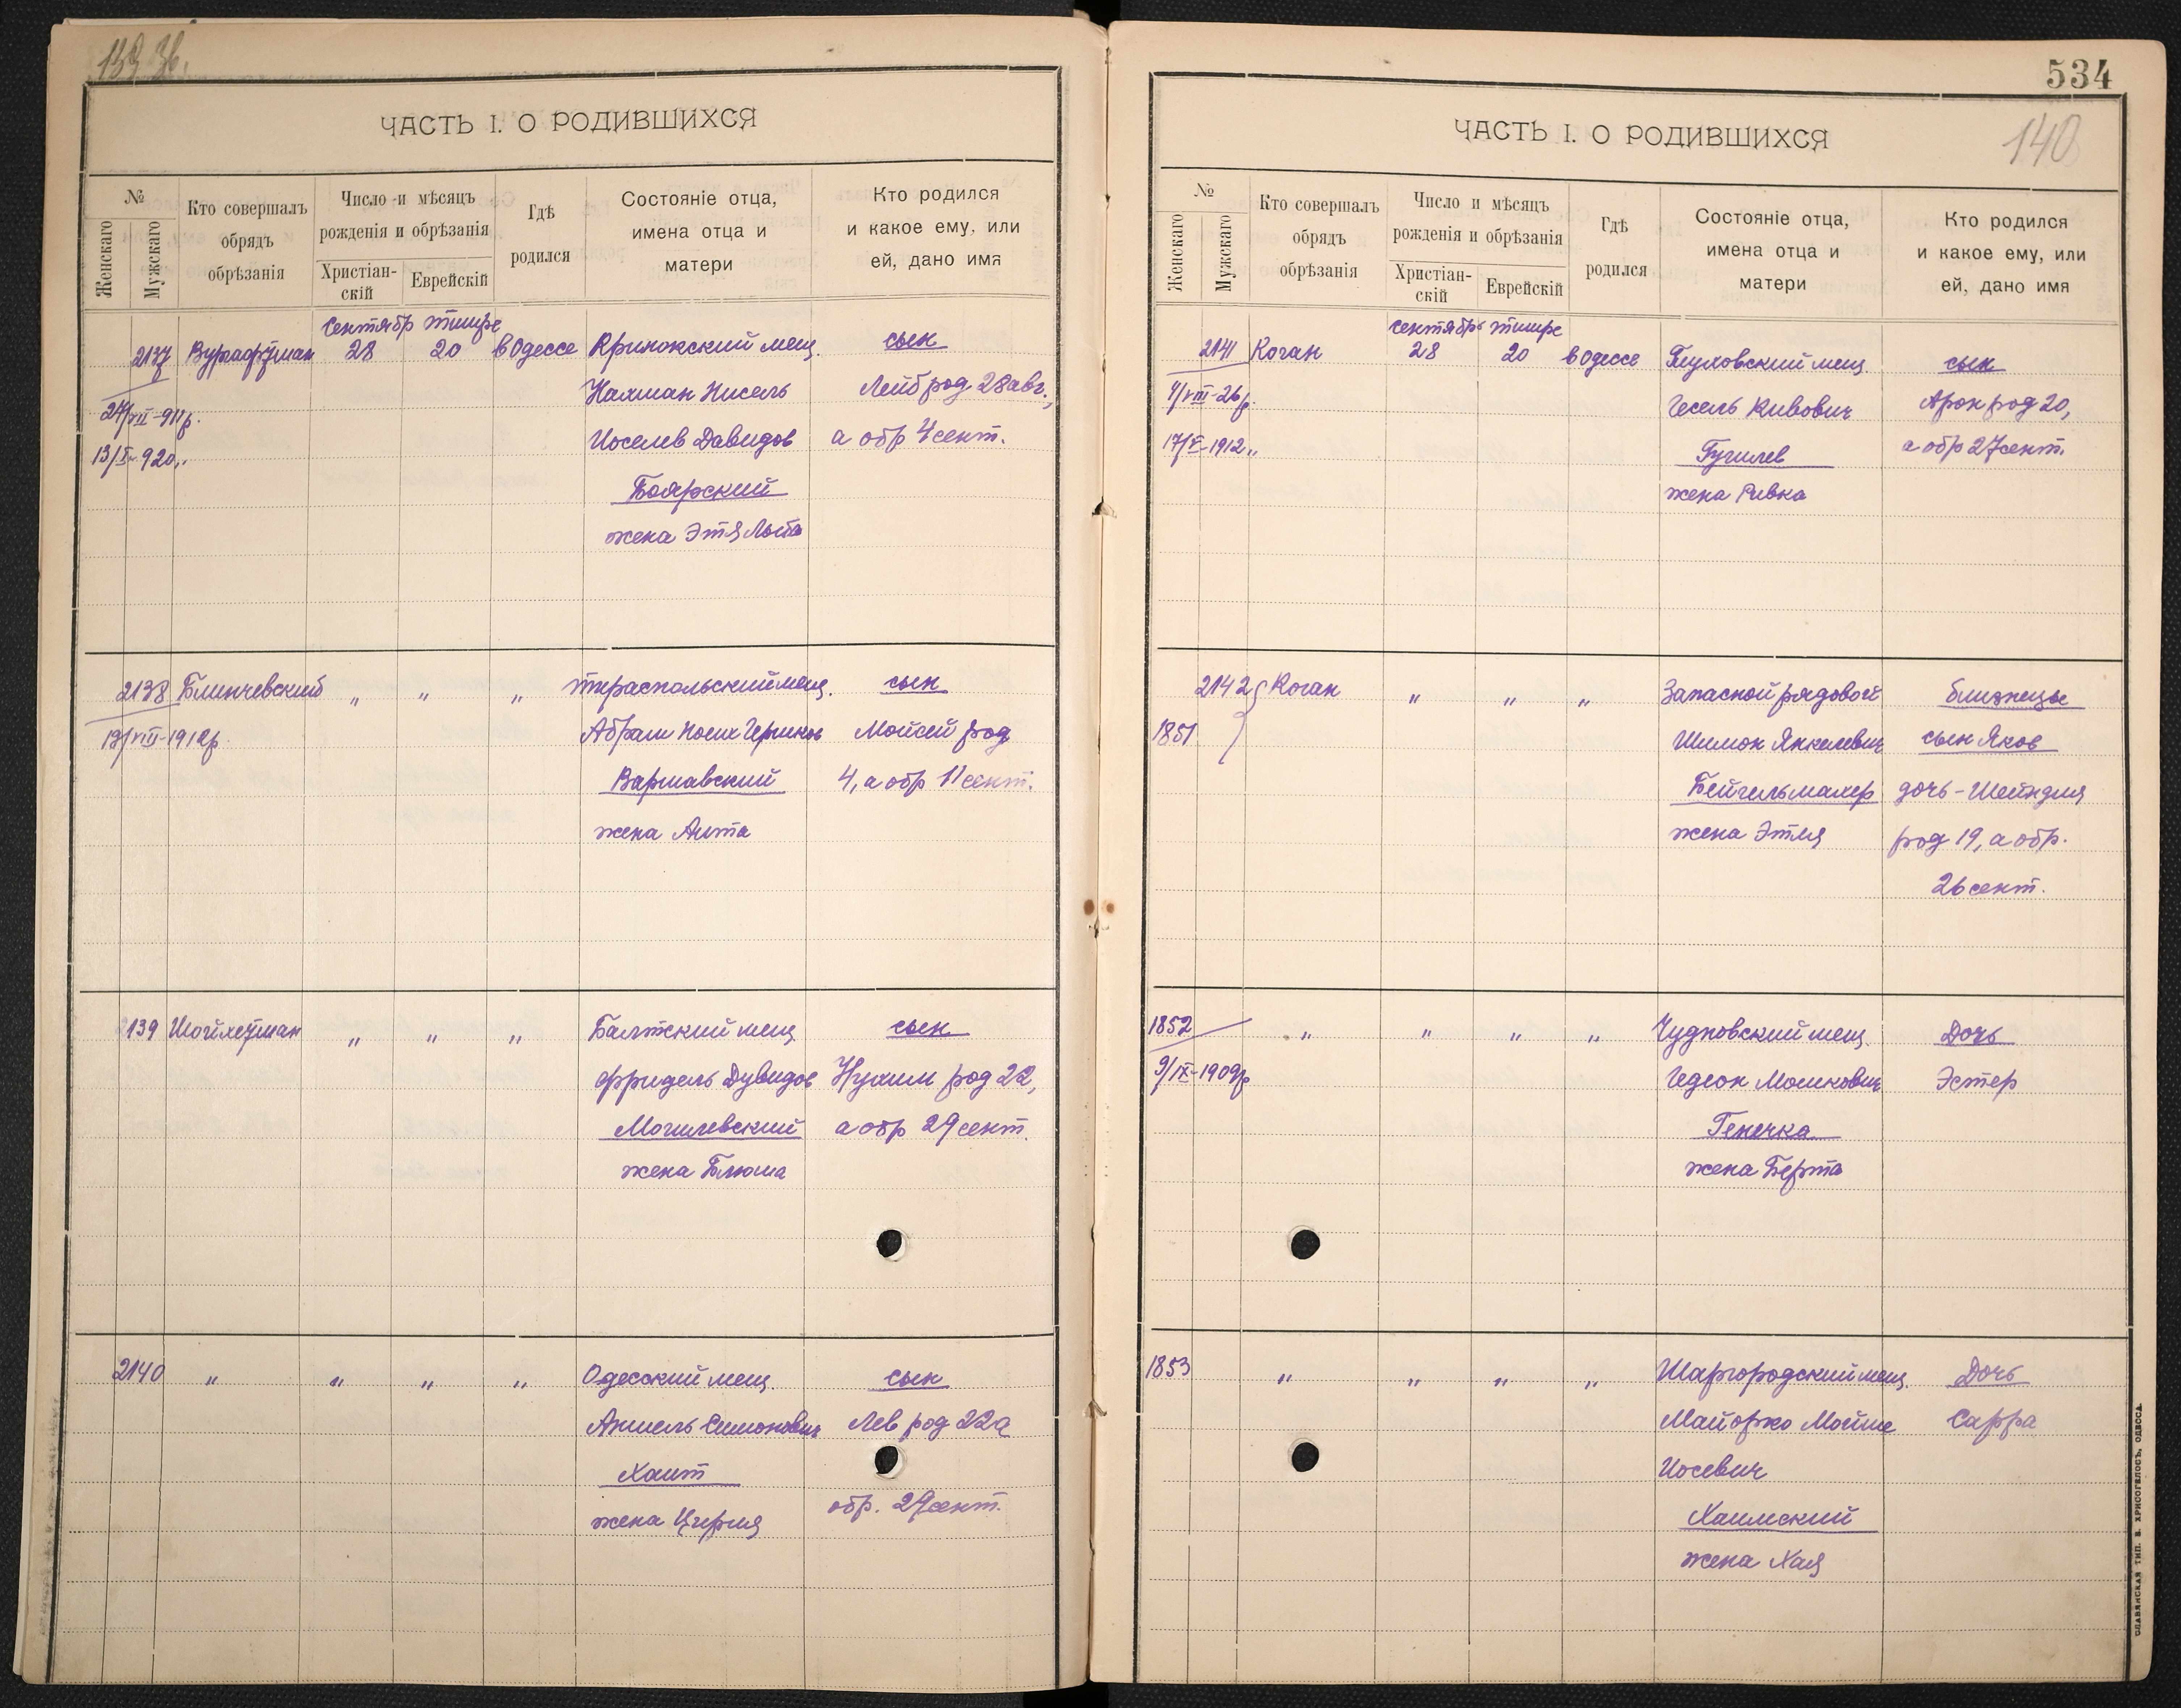 534
140
ЧАСТЬ I. О РОДИВШИХСЯ
№
Женскаго
Мужскаго
Кто совершалъ
обрядъ
обрѣзанія
Число и мѣсяцъ
рожденія и обрѣзанія
Христіан-
скій
Еврейскій
Гдѣ
родился
Состояніе отца,
имена отца и
матери
Кто родился
и какое ему, или
ей, дано имя
сентябр тишре
2137 28 20 в Одессе Кринокский мещ. сын
Нахман Нисель Лейб род 28 авг.,
24/VII-911 р.
Иоселев Давидов а обр 4 сент.
13/X-920 „
Боярский
жена Этя Льба
2138 Блинчевский „ „ „ тираспольский мещ. сын
13/VIII-1912 р.
Моисей род
Варшавский 4, а обр 11 сент.
жена Анта
2139 Шойхетман „ „ „ Балтский мещ сын
Фридель Дувидов Нухим род 22,
Могилевский а обр 29 сент.
жена Блюма
2140 „ „ „ „ Одесский мещ. сын
Аншель Симонович Лев род 22 а
Хаит
обр. 29 сент.
жена Цирля
ЧАСТЬ I. О РОДИВШИХСЯ
№
Женскаго
Мужскаго
Кто совершалъ
обрядъ
обрѣзанія
Число и мѣсяцъ
рожденія и обрѣзанія
Христіан-
скій
Еврейскій
Гдѣ
родился
Состояніе отца,
имена отца и
матери
Кто родился
и какое ему, или
ей, дано имя
сентябрь тишре
2141 Коган 28 20 в Одессе Глуховский мещ сын
4/VIII-26 р. Гесель Кивович Арон род 20,
17/V-1912 „ а обр 27 сент.
жена Ривка
2142 Коган „ „ „ Запасной рядовой близнецы
1851 Шимон Янкелевич сын Яков
Бейгельмахер дочь-Шейндля
жена Этля род 19, а обр.
26 сент.
1852 „ „ „ „ Чудновский мещ. Дочь
9/IX-1909 р Гедеон Мошкович Эстер
Генечка
жена Берта
1853 „ „ „ „ Шаргородский мещ. Дочь
Майорко Мойше Сарра
Иосевич
Хаимский
жена Хая
СЛАВЯНСКАЯ ТИП. Н. ХРИСОГЕЛОСЪ, ОДЕССА.